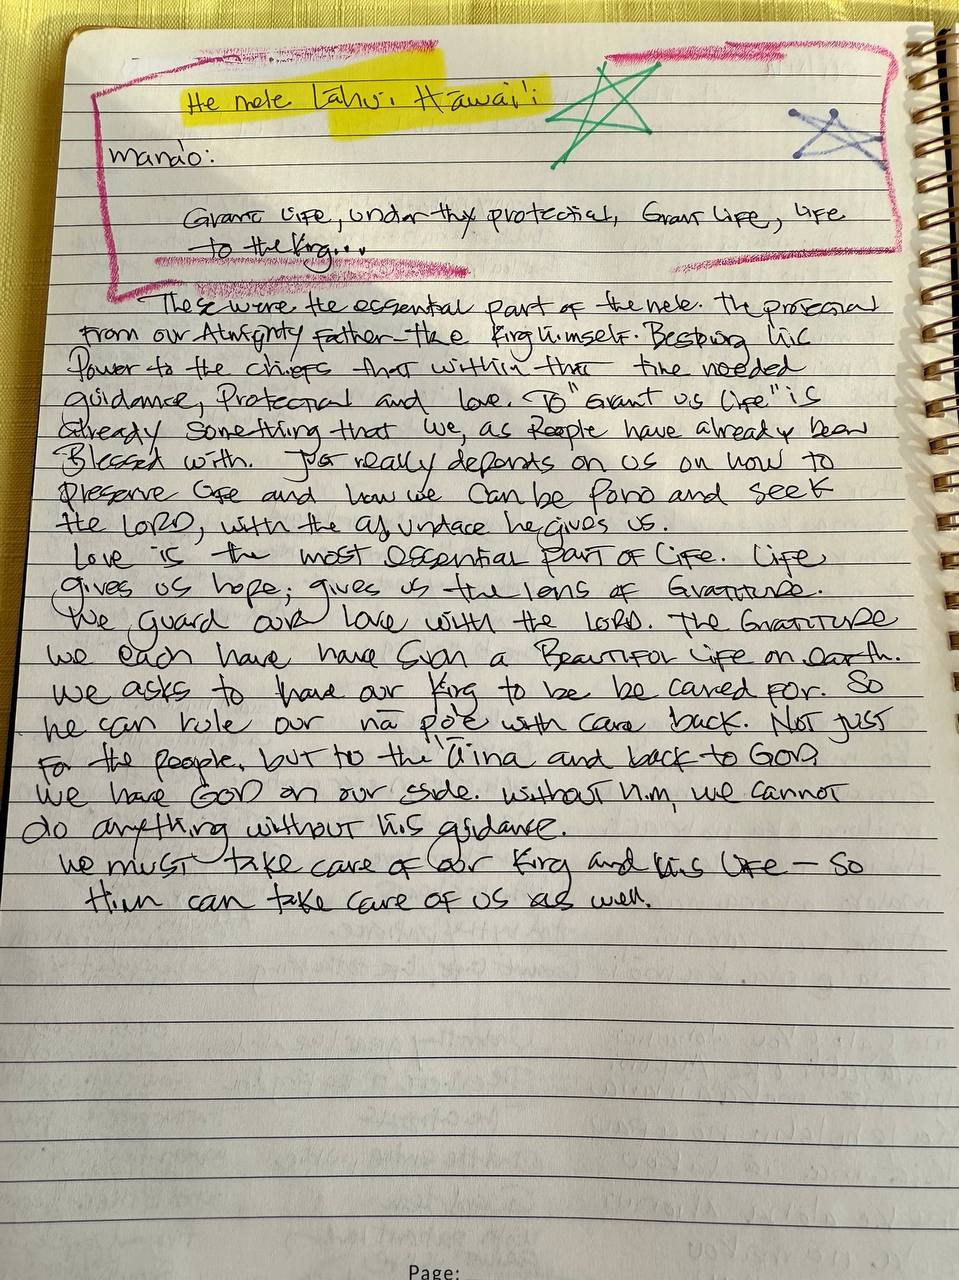 He mele Lāhui Hāwai'i
Mana'o:
Grant Life, under thy protection, Grant Life, life
to the King...
These were the essential part of the mele. The protection
From our Almighty Father - the King himself. Bestowing his
Power to the chiefs that within that time needed
guidance, Protection and love. To "Grant us Life" is
already something that we, as People have already been
Blessed with. Just really depends on us on how to
preserve life and how we can be Pono and seek
the LORD, with the he gives us.
Love is the most essential part of Life. Life
gives us hope; gives us the lens of Gratitude.
We guard our love with the LORD. The GRATITUDE
we each have have a Beautiful Life on earth.
We asks to have our King to be be cared for. So
he can rule our nā po'e with care back. Not just
For the people, but to the 'Āina and back to GOD.
We have GOD on our side. Without him, we cannot
do anything without his guidance.
We must take care of our King and his Life - So
Him can take care of us as well.
Page: